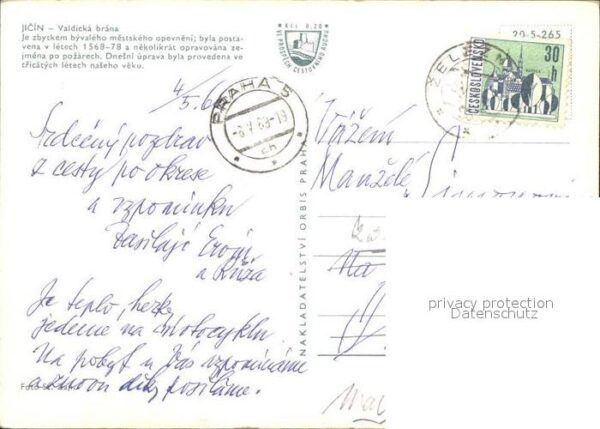 JIČÍN – Valdická brána
Je zbytkem bývalého městského opevnění; byla posta-
vena v létech 1568–78 a několikrát opravována ze-
jména po požárech. Dnešní úprava byla provedena ve
třicátých létech našeho věku.
Kčs 0.20
VE PROSPĚCH CESTOVNÍHO RUCHU
20-5-265
ČESKOSLOVENSKO
30 h
PRAHA 5
-19
ch
4/5.6
Srdečný pozdrav
z cesty po okrese
a vzpomínku
zasílají
a Růža
Je teplo, hezky
jedeme na motocyklu.
Na pobyt u Vás vzpomínáme
a znovu díky posíláme.
Vážení
Manželé
NAKLADATELSTVÍ ORBIS PRAHA
privacy protection
Datenschutz
Foto